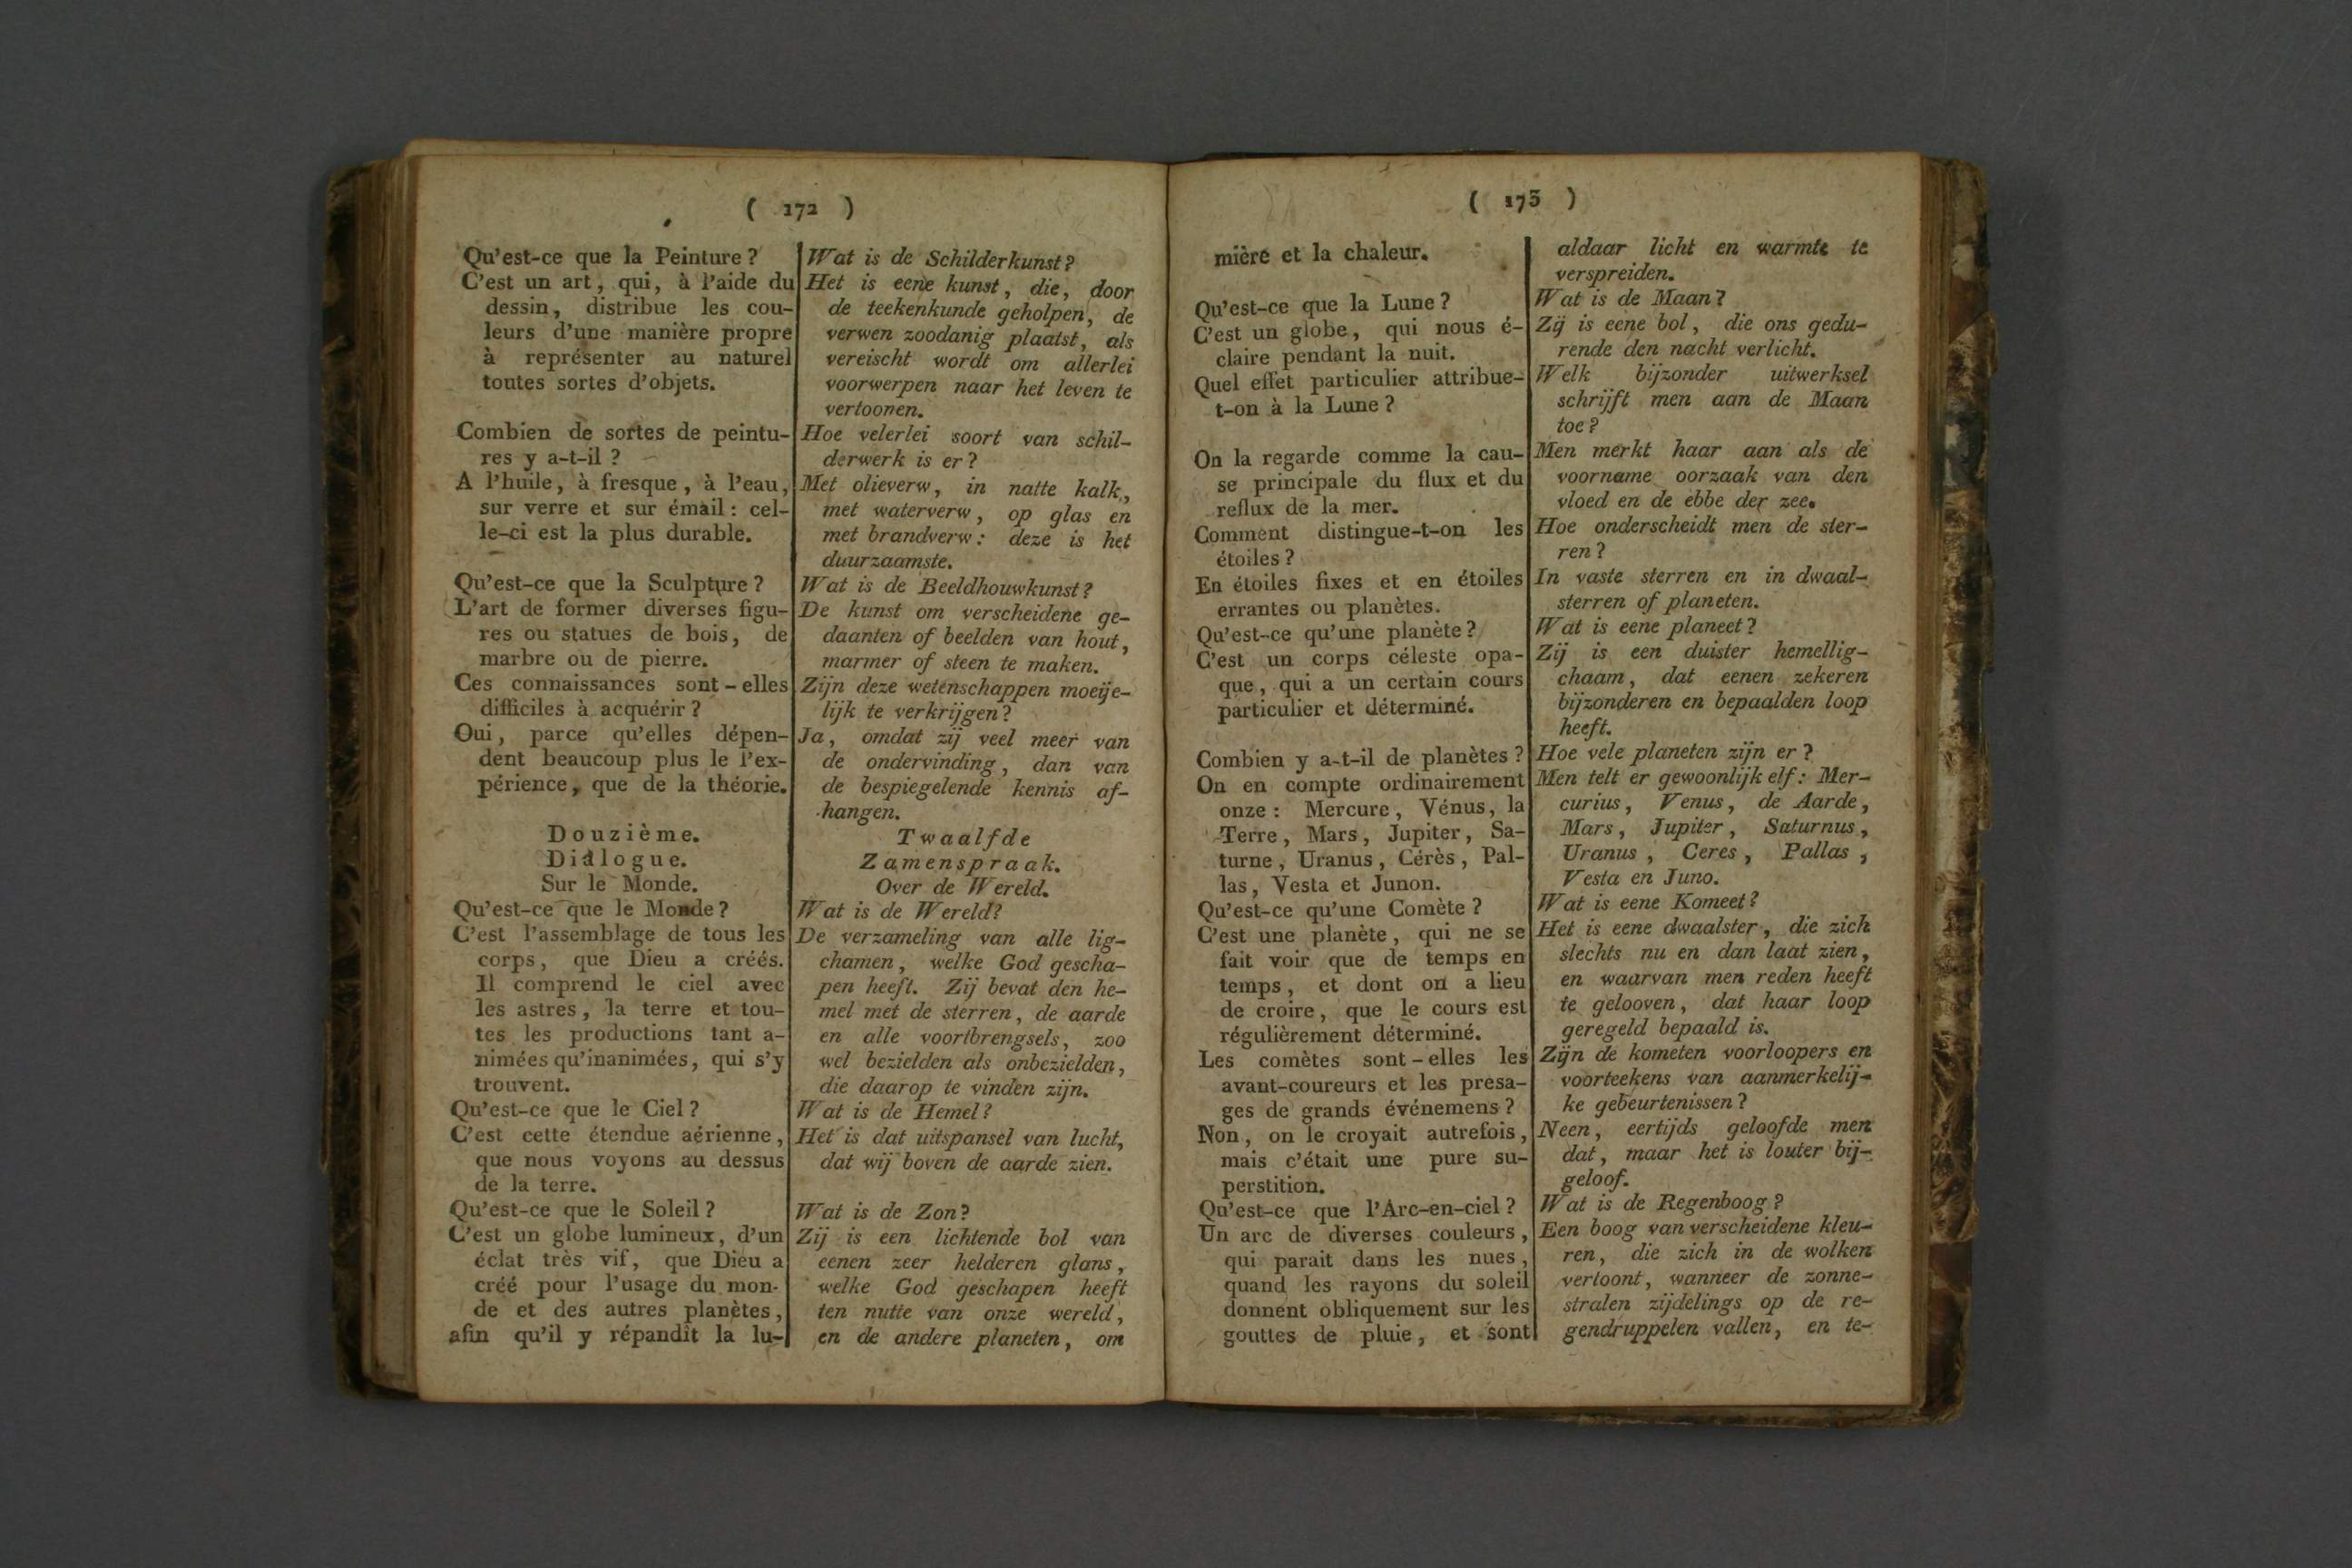 ( 172 )
Qu'est-ce que la Peinture ?
C'est un art, qui, à l'aide du
dessin, distribue les cou-
leurs d'une manière propre
à représenter au naturel
toutes sortes d'objets.
Combien de sortes de peintu-
res y a-t-il ?
A l'huile, à fresque, à l'eau,
sur verre et sur émail : cel-
le-ci est la plus durable.
Qu'est-ce que la Sculpture ?
L'art de former diverses figu-
res ou statues de bois, de
marbre ou de pierre.
Ces connaissances sont-elles
difficiles à acquérir ?
Oui, parce qu'elles dépen-
dent beaucoup plus le l'ex-
périence, que de la théorie.
Douzième.
Dialogue.
Sur le Monde.
Qu'est-ce que le Monde ?
C'est l'assemblage de tous les
corps, que Dieu a créés.
Il comprend le ciel avec
les astres, la terre et tou-
tes les productions tant a-
nimées qu'inanimées, qui s'y
trouvent.
Qu'est-ce que le Ciel ?
C'est cette étendue aérienne,
que nous voyons au dessus
de la terre.
Qu'est-ce que le Soleil ?
C'est un globe lumineux, d'un
éclat très vif, que Dieu a
créé pour l'usage du mon-
de et des autres planètes,
afin qu'il y répandît la lu-
Wat is de Schilderkunst?
Het is eene kunst, die, door
de teekenkunde geholpen, de
verwen zoodanig plaatst, als
vereischt wordt om allerlei
voorwerpen naar het leven te
vertoonen.
Hoe velerlei soort van schil-
derwerk is er?
Met olieverw, in natte kalk,
met waterverw, op glas en
met brandverw: deze is het
duurzaamste.
Wat is de Beeldhouwkunst?
De kunst om verscheidene ge-
daanten of beelden van hout,
marmer of steen te maken.
Zijn deze wetenschappen moeije-
lijk te verkrijgen?
Ja, omdat zij veel meer van
de ondervinding, dan van
de bespiegelende kennis af-
hangen.
Twaalfde
Zamenspraak.
Over de Wereld.
Wat is de Wereld?
De verzameling van alle lig-
chamen, welke God gescha-
pen heeft. Zij bevat den he-
mel met de sterren, de aarde
en alle voortbrengsels, zoo
wel bezielden als onbezielden,
die daarop te vinden zijn.
Wat is de Hemel?
Het is dat uitspansel van lucht,
dat wij boven de aarde zien.
Wat is de Zon?
Zij is een lichtende bol van
eenen zeer helderen glans,
welke God geschapen heeft
ten nutte van onze wereld,
en de andere planeten, om
( 173 )
mière et la chaleur.
Qu'est-ce que la Lune ?
C'est un globe, qui nous é-
claire pendant la nuit.
Quel effet particulier attribue-
t-on à la Lune ?
On la regarde comme la cau-
se principale du flux et du
reflux de la mer.
Comment distingue-t-on les
étoiles ?
En étoiles fixes et en étoiles
errantes ou planètes.
Qu'est-ce qu'une planète ?
C'est un corps céleste opa-
que, qui a un certain cours
particulier et déterminé.
Combien y a-t-il de planètes ?
On en compte ordinairement
onze : Mercure, Vénus, la
Terre, Mars, Jupiter, Sa-
turne, Uranus, Cérès, Pal-
las, Vesta et Junon.
Qu'est-ce qu'une Comète ?
C'est une planète, qui ne se
fait voir que de temps en
temps, et dont on a lieu
de croire, que le cours est
régulièrement déterminé.
Les comètes sont-elles les
avant-coureurs et les presa-
ges de grands événemens ?
Non, on le croyait autrefois,
mais c'était une pure su-
perstition.
Qu'est-ce que l'Arc-en-ciel ?
Un arc de diverses couleurs,
qui parait dans les nues,
quand les rayons du soleil
donnent obliquement sur les
gouttes de pluie, et sont
aldaar licht en warmte te
verspreiden.
Wat is de Maan?
Zij is eene bol, die ons gedu-
rende den nacht verlicht.
Welk bijzonder uitwerksel
schrijft men aan de Maan
toe?
Men merkt haar aan als de
voorname oorzaak van den
vloed en de ebbe der zee.
Hoe onderscheidt men de ster-
ren?
In vaste sterren en in dwaal-
sterren of planeten.
Wat is eene planeet?
Zij is een duister hemellig-
chaam, dat eenen zekeren
bijzonderen en bepaalden loop
heeft.
Hoe vele planeten zijn er?
Men telt er gewoonlijk elf: Mer-
curius, Venus, de Aarde,
Mars, Jupiter, Saturnus,
Uranus, Ceres, Pallas,
Vesta en Juno.
Wat is eene Komeet?
Het is eene dwaalster, die zich
slechts nu en dan laat zien,
en waarvan men reden heeft
te gelooven, dat haar loop
geregeld bepaald is.
Zijn de kometen voorloopers en
voorteekens van aanmerkelij-
ke gebeurtenissen?
Neen, eertijds geloofde men
dat, maar het is louter bij-
geloof.
Wat is de Regenboog?
Een boog van verscheidene kleu-
ren, die zich in de wolken
vertoont, wanneer de zonne-
stralen zijdelings op de re-
gendruppelen vallen, en te-